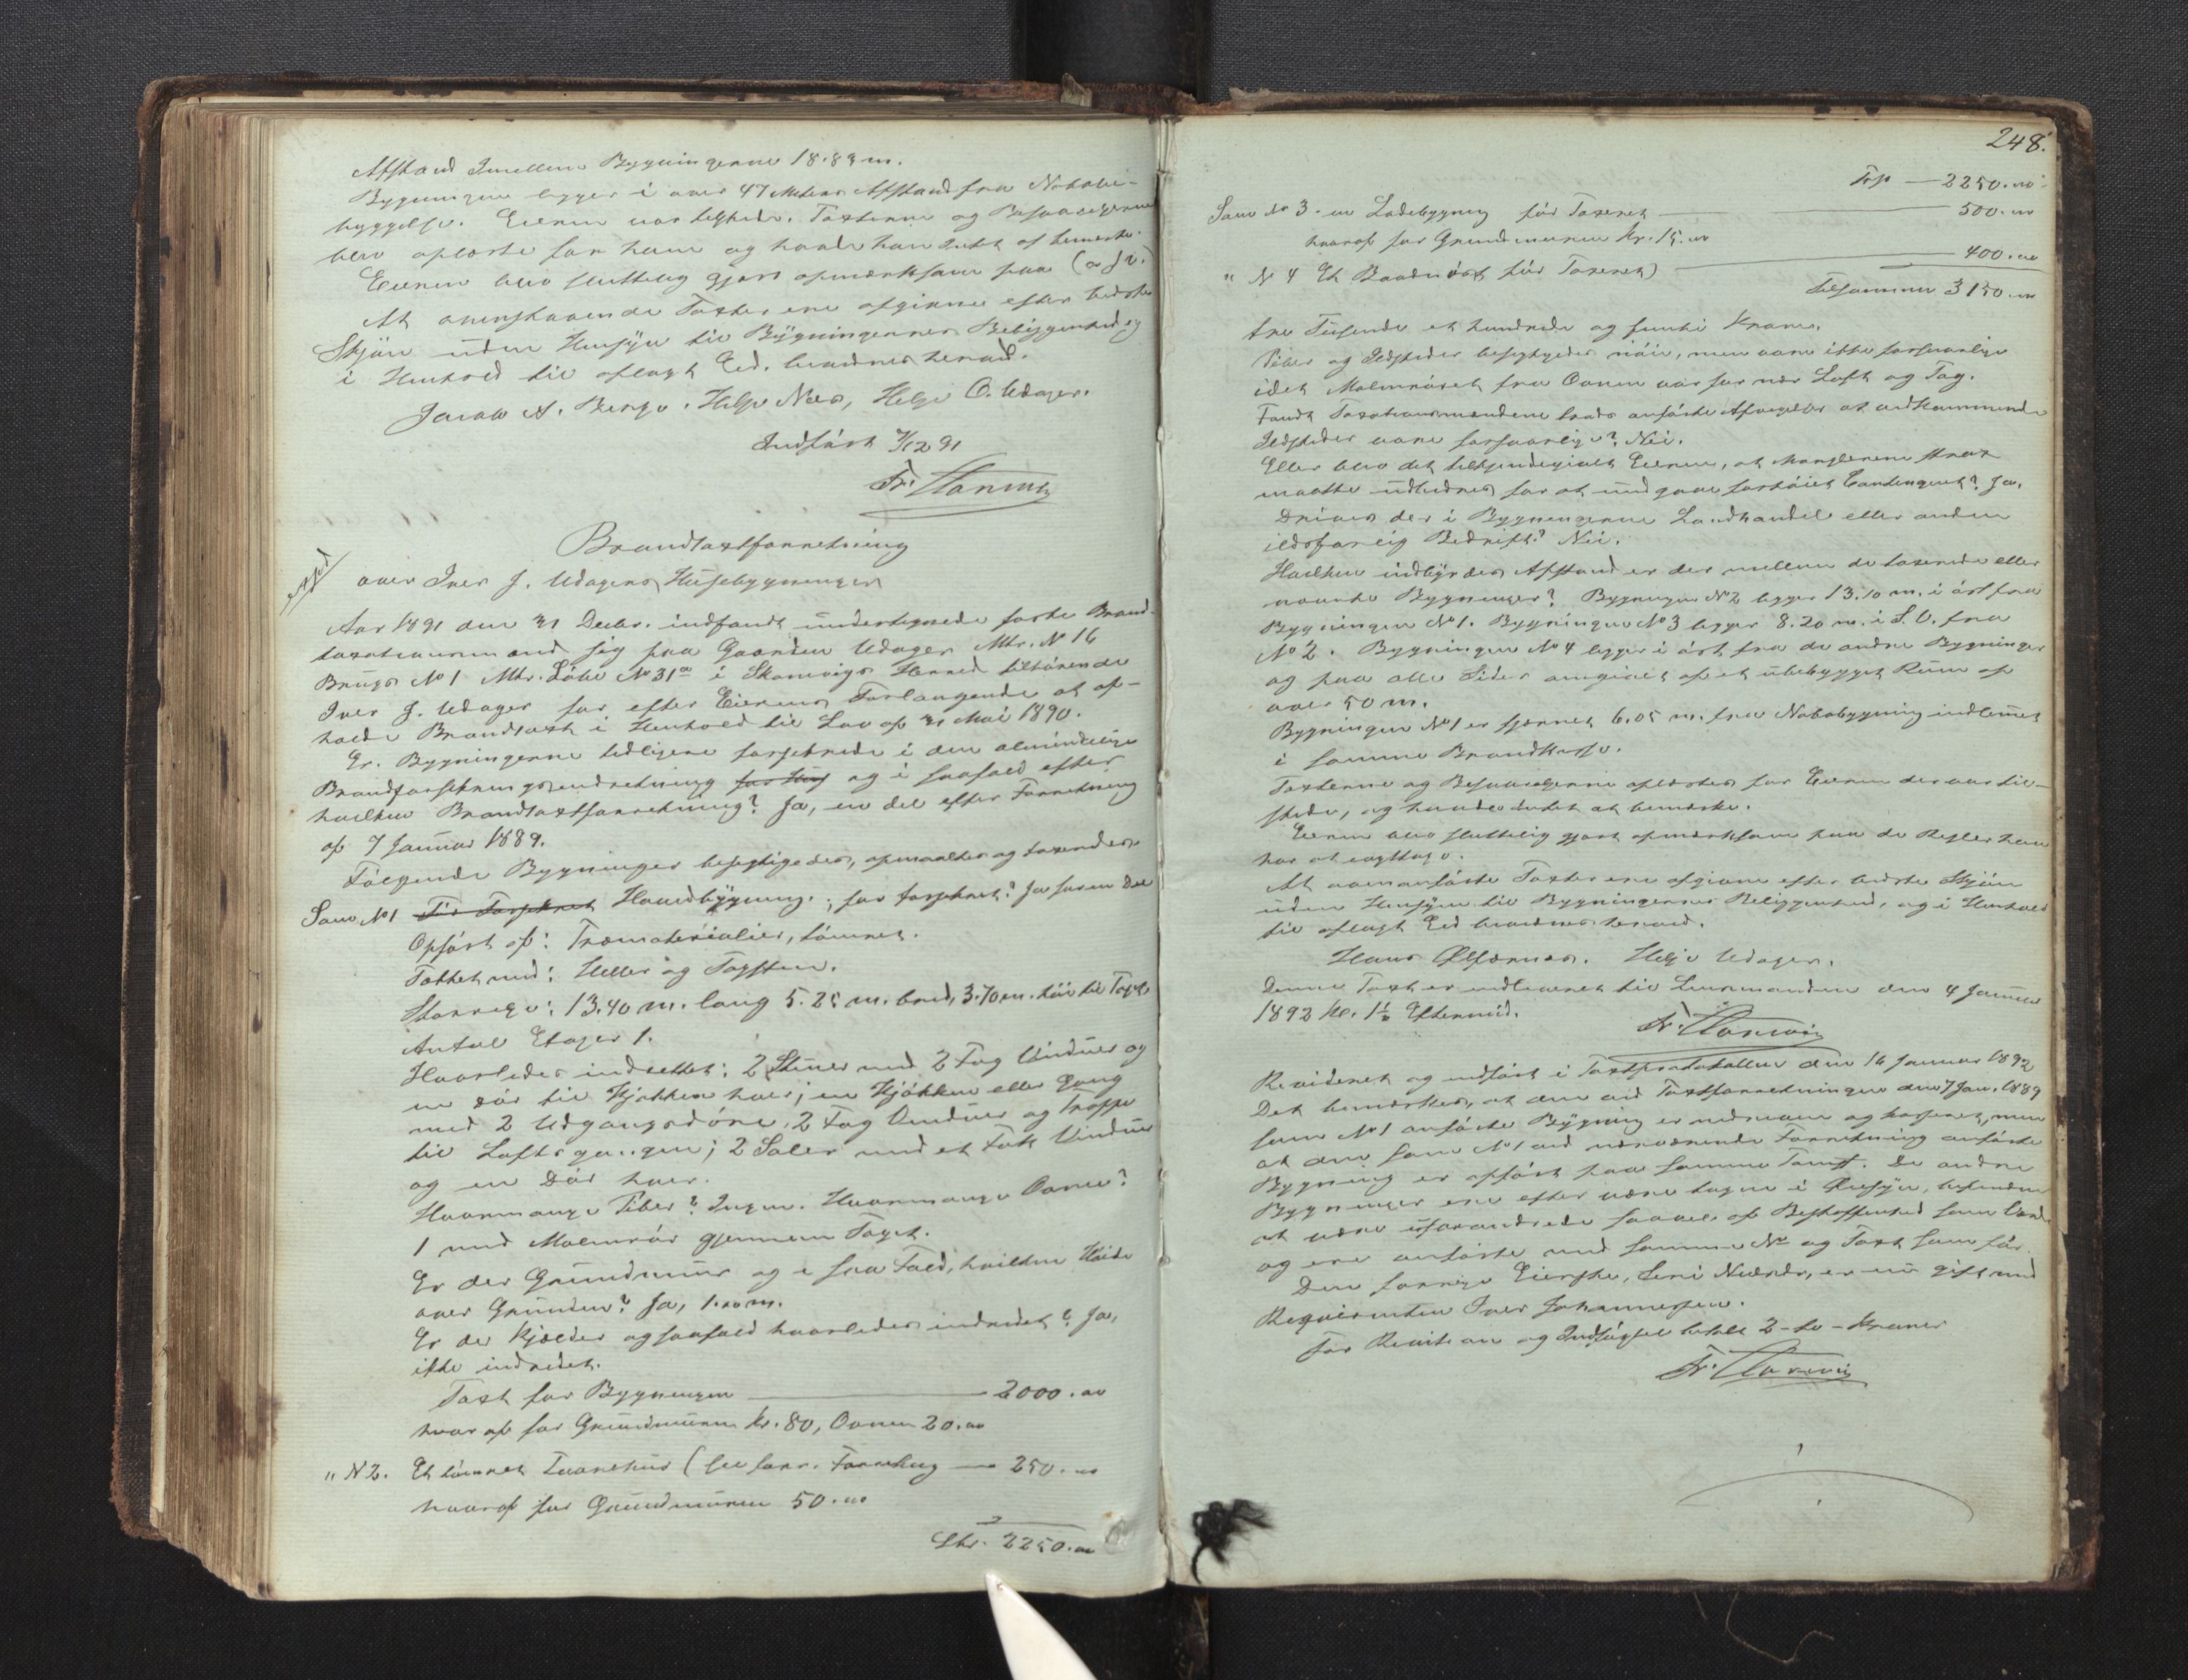 Afstand Imellem Bygningerne 18.83 m.
Bygningen ligger i over 47 Meters Afstand fra Nabobe-
byggelse. Eieren var tilstede. Taxterne og Besvarelserne
blev oplæste for ham og havde han Intet at bemærke.
Eieren blev sluttelig gjort opmærksom paa
At ovenstaaende Taxter ere afgivne efter bedste
Skjøn uden Hensyn til Bygningernes Beliggenhed og
i Henhold til aflagt Ed, bevidnes herved.
Jacob A. Berge. Helje Næs, Helje O. Udager.
Indført 7/12 91
Fr.
Brandtaxtforretning
over Iver J. Udagers Husebygninger
Aar 1891 den 31 Decbr. indfandt undertegnede faste Brand-
taxationsmænd sig paa Gaarden Udager Mtr. No 16
Brugs No 1 Mtr. Løbe No 31a i Skonevigs Herred tilhørende
Iver J. Udager for efter Eierens Forlangende at af-
holde Brandtaxt i Henhold til Lov af 31 Mai 1890.
Er Bygningerne tidligere forsikrede i den almindelige
Brandforsikringsindretning og i saafald efter
hvilken Brandtaxtforretning? Ja, en del efter Forretning
af 7 Januar 1889.
Følgende Bygninger besigtigedes, opmaaltes og taxeredes.
Som No 1 Før Forsikret Hovedbygning, før forsikret? Ja for en Del
Opført af: Træmaterialier, tømret.
Tækket med: Heller og Tagsten.
Størrelse: 13.40 m. lang 5.25 m. bred, 3.70 m. høi til Taget
Antal Etager 1.
Hvorledes indrettet: 2 Stuer med 2 Fag Vinduer og
en Dør til Kjøkken hver; en Kjøkken eller Gang
med 2 Udgangsdøre, 2 Fag Vinduer og Trappe
til Loftsgangen; 2 Saler med et Fag Vinduer
og en Dør hver.
Hvormange Piber? Ingen. Hvormange Ovne?
1 med Malmrør gjennem Taget.
Er der Grundmur og i saa Fald, hvilken Høide
over Grunden? Ja, 1.00 m.
Er der Kjælder og saafald hvorledes indredet? Ja,
ikke indredet.
Taxt for Bygningen 2000.00
hvoraf for Grundmuren kr. 80, Ovnen 20.00
" N 2. Et tømret Tværhus (se forr. Forretning 250.00
hvoraf for Grundmuren 50.00
2250.00
248.
Trsp 2250.00
Som No 3. en Ladebygning før Taxeret 500.00
hvoraf for Grundmuren kr. 15.00
" N 4 Et Baadnøst før Taxeret) 400.00
Tilsammen 3150.00
tre Tusende et hundrede og femti Kroner.
Piber og Ildsteder besigtigedes nøie, men vare ikke forsvarlige
idet Malmrøret fra Ovnen var for nær Loft og Tag.
Fandt Taxationsmændene trods anførte Afvigelser at vedkommende
Ildsteder vare forsvarlige? Nei.
Eller blev det tilkjendegivet Eieren, at Manglerene strax
maatte udbedres for at undgaae forhøiet Contingent? Ja.
Drives der i Bygningerne Landhandel eller anden
ildsfarlig Bedrift? Nei.
Hvilken indbyrdes Afstand er der mellem de taxerede eller
nævnte Bygninger? Bygningen No 2 ligger 13.10 m. i øst fra
Bygningen No 1. Bygningen No 3 ligger 8.20 m. i S.V. fra
No 2. Bygningen No 4 ligger i øst fra de andre Bygninger
og paa alle Sider omgivet af et ubebygget Rum af
over 50 m.
Bygningen No 1 er fjernet 6.05 m. fra Nabobygning indlemmet
i samme Brandkasse.
Taxterne og Besvarelserne oplæstes for Eieren der var til-
stede, og havde Intet at bemærke.
Eieren blev sluttelig gjort opmærksom paa de Regler han
har at iagttage.
At ovenanførte Taxter ere afgivne efter bedste Skjøn
uden Hensyn til Bygningernes Beliggenhed, og i Henhold
til aflagt Ed bevidnes herved.
Hans Ølfærnes. Helje Udager.
Denne Taxt er indleveret til Lensmanden den 4 Januar
1892 Kl. 1½ Eftermid.
Fr.
Revideret og indført i Taxtprotokollen den 16 Januar 1892
Det bemærkes, at den ved Taxtforretningen den 7 Jan. 1889
som No 1 anførte Bygning er nedreven og kasseret, men
at den som No 1 ved nærværende Forretning anførte
Bygning er opført paa samme Tomt. De andre
Bygninger ere efter være tagne i Øiesyn, befundne
at være uforandrede saavel af Beskaffenhed som Værdi
og ere anførte med samme No og Taxt som før.
Den forrige Eierske, Seni, er nu gift med
Requirenten Iver Johannessen.
For Revision og Indførsel betalt 2 - to - Kroner
Fr.